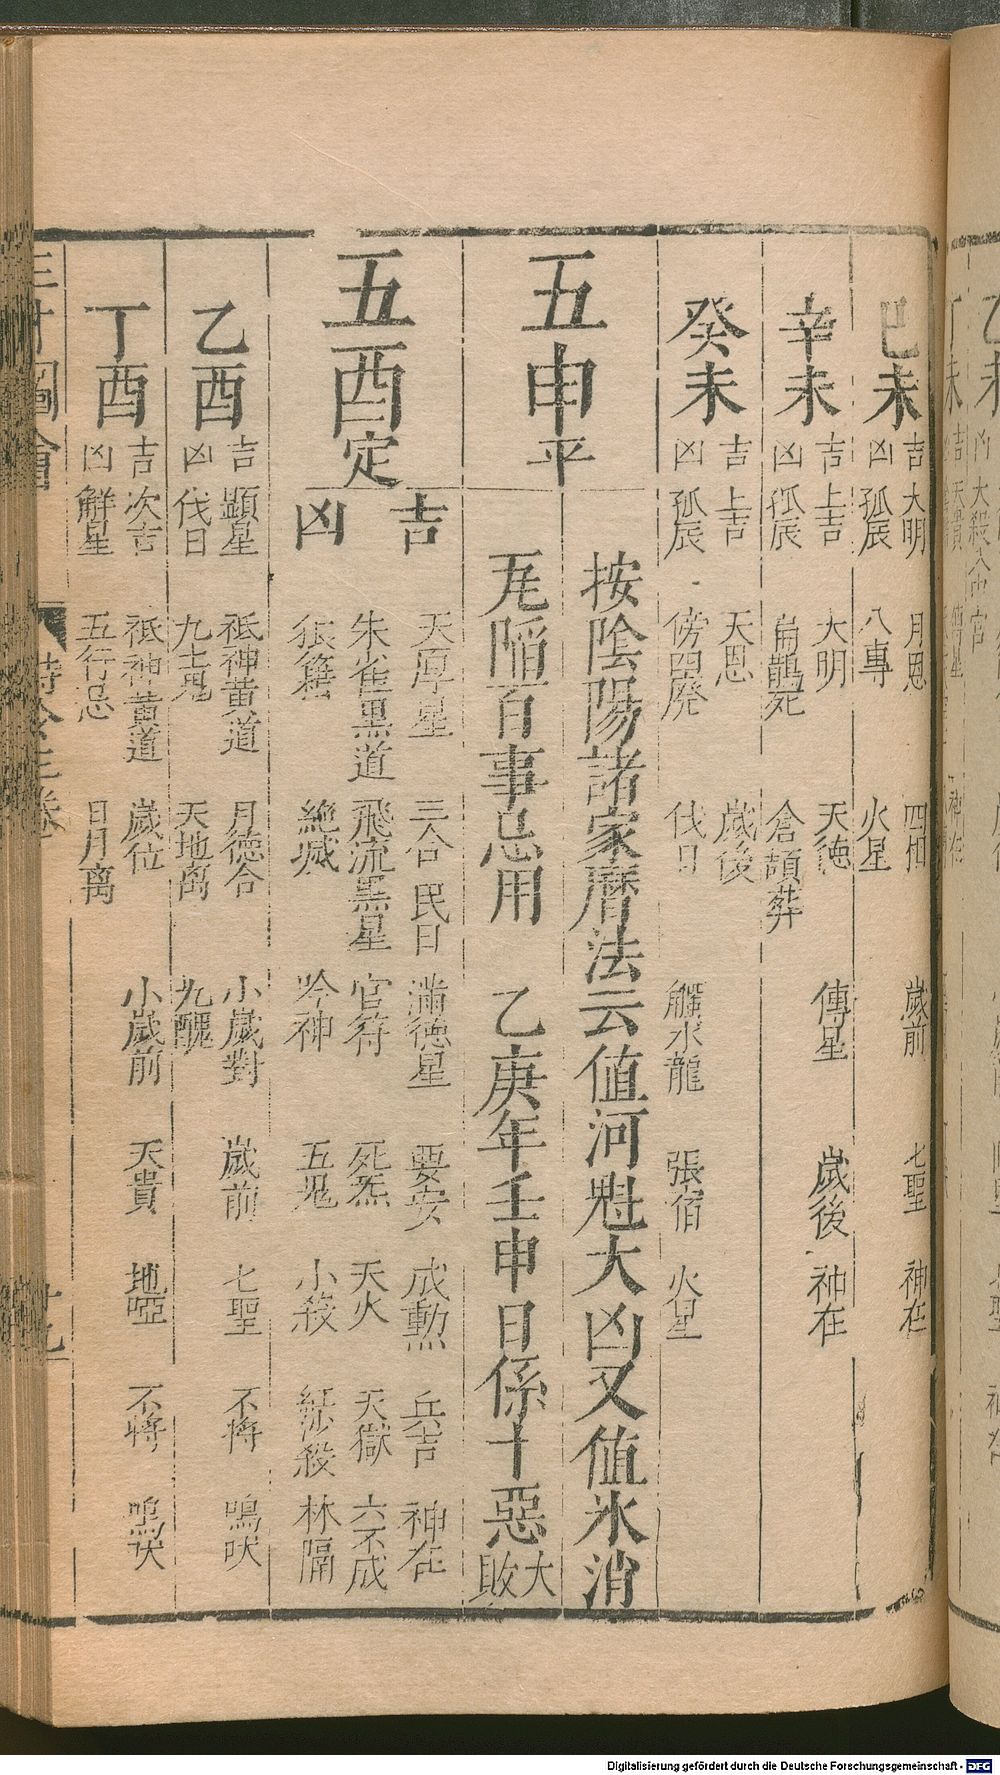 巳未
吉 大明 月恩 四相 歲前 七聖 神在
凶 孤辰 八專 火星
辛未
吉 上吉 大明 天德 傳星 歲後 神在
凶 孤辰 倉頡葬
癸未
吉 上吉 天恩 歲後
凶 孤辰 傍四廢 伐日 觸水龍 張宿 火星
五申平
按陰陽諸家曆法云值河魁大凶又值氷消
瓦陷百事忌用 乙庚年壬申日係十惡大敗
五酉定
吉 天厚星 三合 民日 滿德星 要安 成勲 兵吉 神在
凶 朱雀黑道 飛流黑星 官符 死炁 天火 天獄 六不成
狼籍 絶滅 吟神 五鬼 小殺 紅沙殺 林隔
乙酉
吉 顯星 祗神黃道 月德合 小歲對 歲前 七聖 不將 鳴吠
凶 伐日 九土鬼 天地离 九醜
丁酉
吉 次吉 祗神黃道 歲位 小歲前 天貴 地啞 不將 鳴吠
凶 鮮星 五行忌 日月离
三才圖會
時令三卷
十九
Digitalisierung gefördert durch die Deutsche Forschungsgemeinschaft - DFG